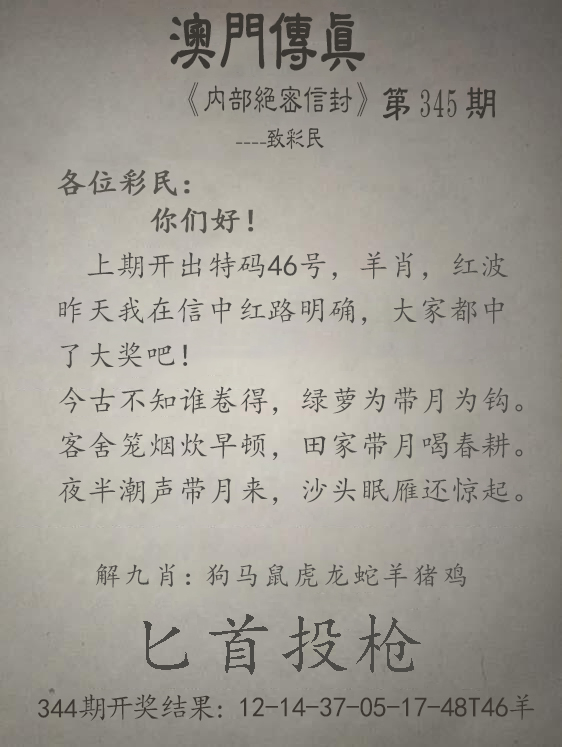 澳門傳真
《内部絕密信封》第345期
----致彩民
各位彩民：
你们好！
上期开出特码46号，羊肖，红波
昨天我在信中红路明确，大家都中
了大奖吧！
今古不知谁卷得，绿萝为带月为钩。
客舍笼烟炊早顿，田家带月喝春耕。
夜半潮声带月来，沙头眠雁还惊起。
解九肖：狗马鼠虎龙蛇羊猪鸡
匕首投枪
344期开奖结果：12-14-37-05-17-48T46羊